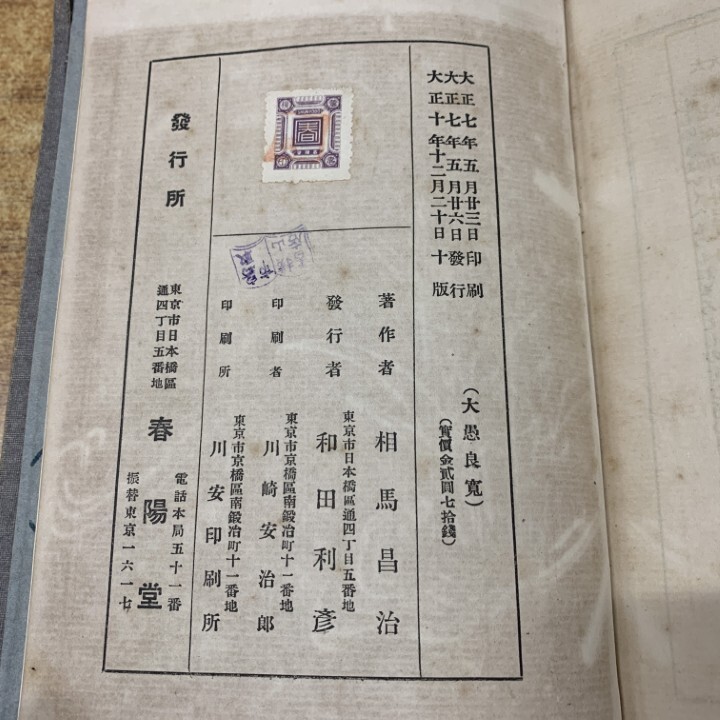 大正七年五月廿三日印刷
大正七年五月廿六日發行
大正十年十二月二十日十版
（大愚良寬）
（實價金貳圓七拾錢）
著作者 相馬昌治
東京市日本橋區通四丁目五番地
發行者 和田利彥
東京市京橋區南鍛冶町十一番地
印刷者 川崎安治郎
東京市京橋區南鍛冶町十一番地
印刷所 川安印刷所
春
發行所
東京市日本橋區
通四丁目五番地
春陽堂
電話本局五十一番
振替東京一六一七